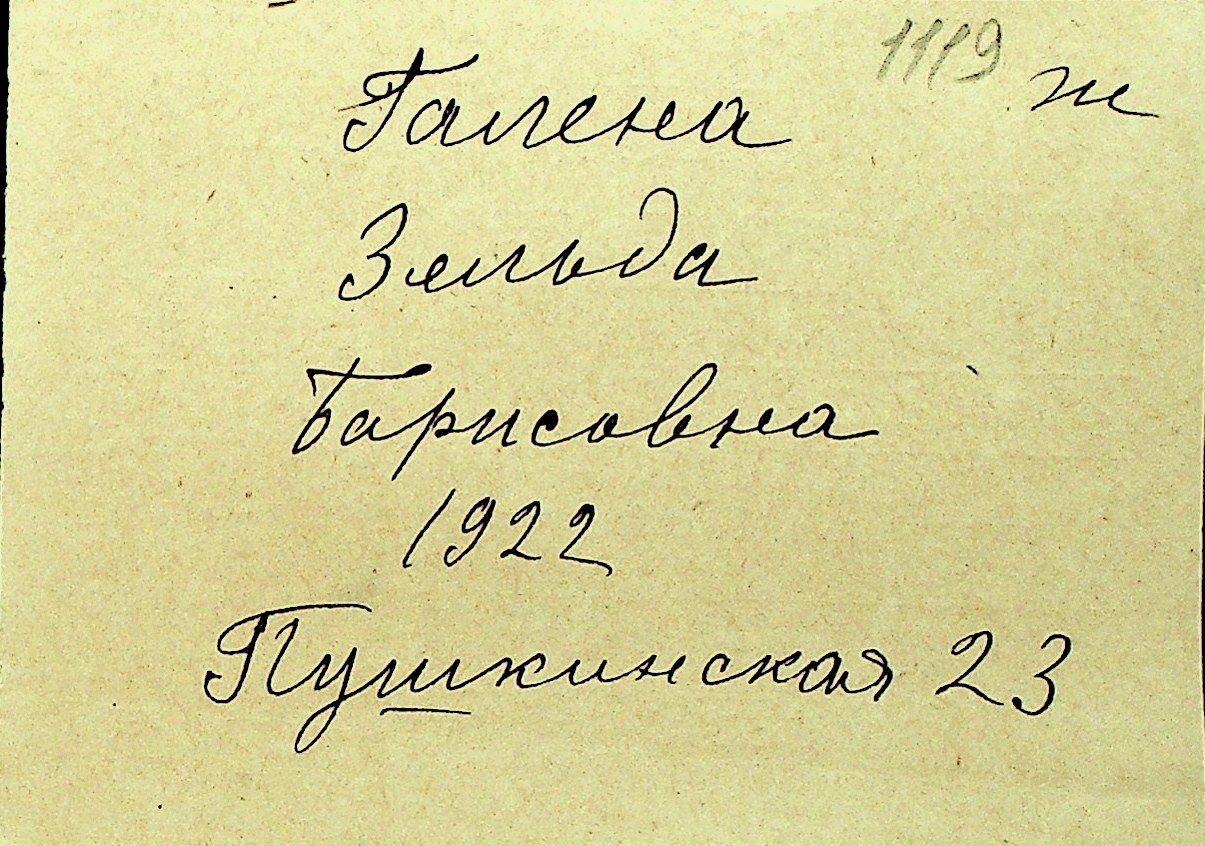 1119 ж
Галена
Зельда
Барисовна
1922
Пушкинская 23